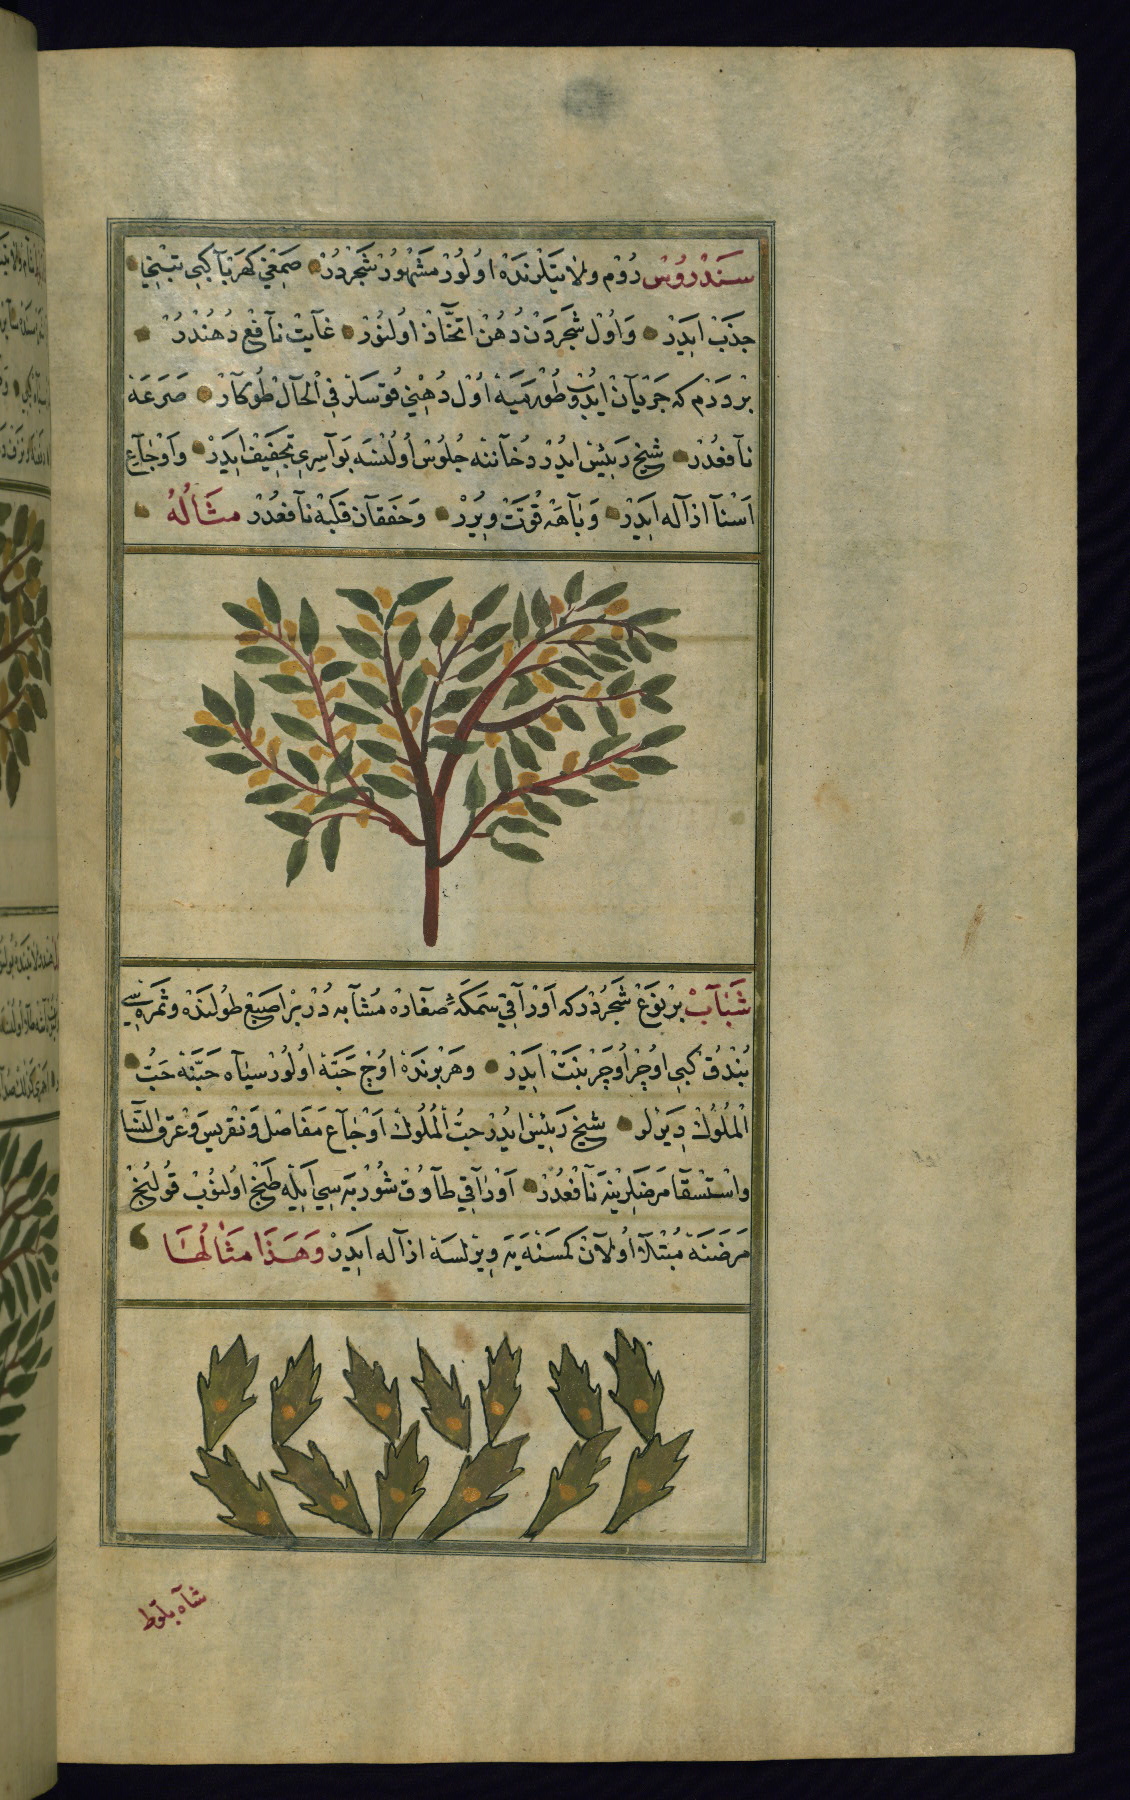 سَنَدْرُوسْ رُوم ولايتلرنده اولور مشهور شجردر صمغي كهربا كبي تبني
جذب ايدر و اول شجردن دهن اتخاذ اولنور غايت نافع دهندر
بر دردم كه جريان ايدوب طورميه اول دهني قوسلر في الحال طوكار صرعه
نافعدر شيخ رئيس ايدر دخاننه جلوس اولنسه بواسيري تجفيف ايدر و اوجاع
اسنا ازاله ايدر و باهه قوت ويرر و خفقان قلبه نافعدر مثاله
شباب بر نوع شجردر كه اوراقي سمكۀ صغاره مشابه در بر اصبع طولنده و ثمره سي
بندق كبي اوچر اوچر بنت ايدر و هر برنده اوچ حبه اولور سياه حبنه حب
الملوك ديرلر شيخ رئيس ايدر حب الملوك اوجاع مفاصل و نقريس و عرق النسا
و استسقا مرضلرينه نافعدر اوراقي طاوق شوربه سي ايله طبخ اولنوب قولنج
مرضنه مبتلا اولان كمسنه يه ويرلسه ازاله ايدر وهذا مثالها
شاه بلوط